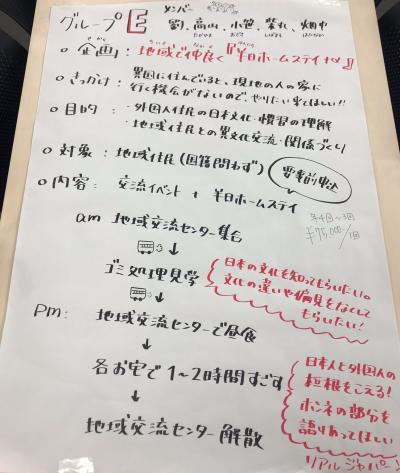 グループE
メンバー
劉、高山、小笹、柴丸、畑中
たかやま おざさ しばまる はたなか
○企画：地域で仲良く『半日ホームステイ
きかく
○きっかけ：異国に住んでいると、現地の人の家に
行く機会がないので、やりたい！来てほしい！！
○目的：・外国人住民の日本文化・慣習の理解
・地域住民との異文化交流・関係づくり
○対象：地域住民(国籍問わず)
要事前申込
○内容：交流イベント + 半日ホームステイ
年4回〜3回
¥75,000-/1回
am 地域交流センター集合
↓
ゴミ処理見学
日本の文化を知ってもらいたい。
文化の違いや偏見をなくして
もらいたい！
↓
PM: 地域交流センターで昼食
↓
各お宅で1〜2時間すごす
日本人と外国人の
垣根をこえる！
ホンネの部分を
語りあってほしい
リアルジャパン！
↓
地域交流センター解散